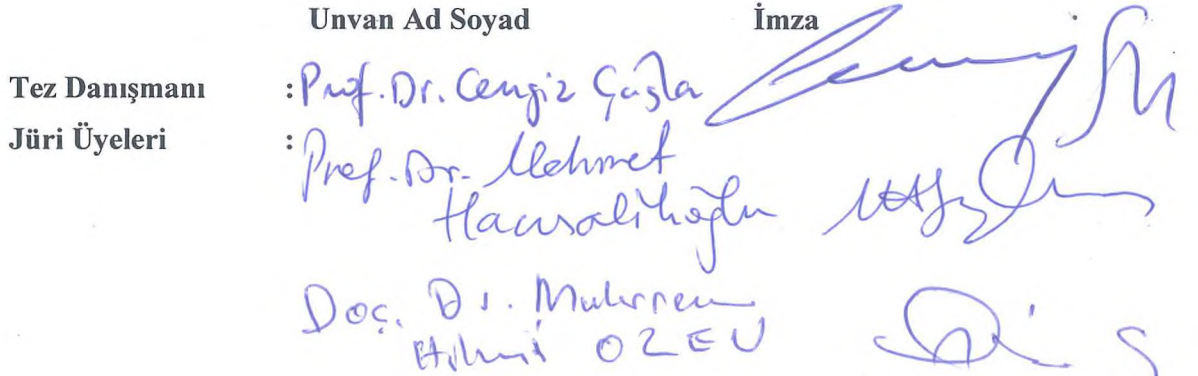 Unvan Ad Soyad İmza
Tez Danışmanı : Prof. Dr. Cengiz Çağla
Jüri Üyeleri : Prof. Dr. Mehmet
Hacısalihoğlu
Doç. Dr. Muharrem
Hilmi ÖZEV